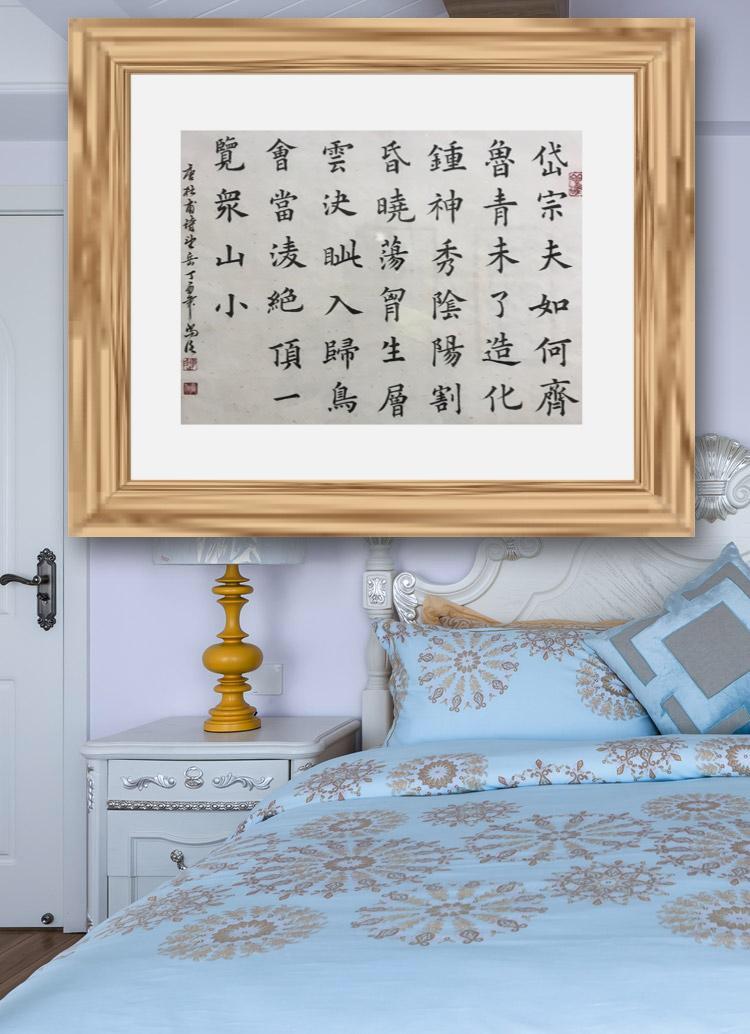 岱宗夫如何齊
魯青未了造化
鍾神秀陰陽割
昏曉蕩胷生層
雲決眦入歸鳥
會當淩絕頂一
覽衆山小
唐杜甫詩望岳丁酉年